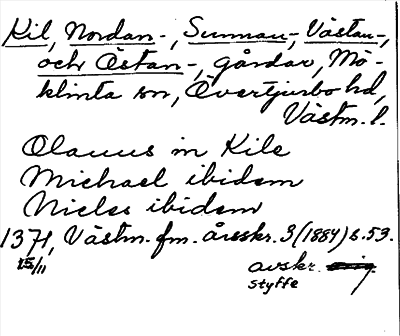 Kil, Nordan-, Sunnan-, Västan-,
och Östan-, gårdar, Mö-
klinta sn, Övertjurbo hd,
Västm. l.
Olauus in Kile
Michael ibidem
Nicles ibidem
1371, Västm. fm. årsskr. 3 (1884) s. 53.
25/11
avskr.
Styffe